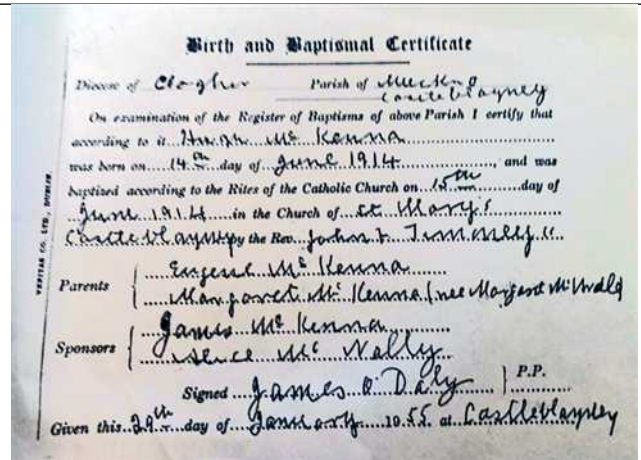 Birth and Baptismal Certificate
Diocese of Clogher Parish of Muckno
Castleblayney
On examination of the Register of Baptisms of above Parish I certify that
according to it Hugh Mc Kenna
was born on 14th day of June 1914, and was
baptized according to the Rites of the Catholic Church on 15th day of
June 1914 in the Church of St Mary's
Castleblayney by the Rev. John F
Parents Eugene Mc Kenna
Margaret Mc Kenna (nee Margaret
Sponsors James Mc Kenna
Mc Nally
Signed James O'Daly P.P.
Given this 29th day of January 1955 at Castleblayney
VERITAS CO. LTD., DUBLIN.